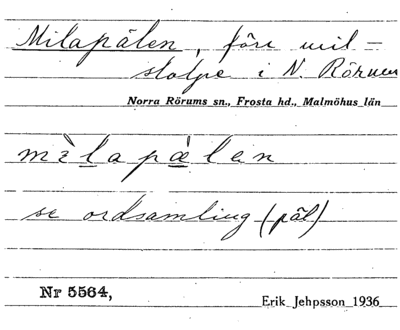 Milapålen, före mil-
stolpe i N. Rörum
Norra Rörums sn., Frosta hd., Malmöhus län
mìlapælen
se ordsamling (pål)
Nr 5564,
Erik Jehpsson 1936